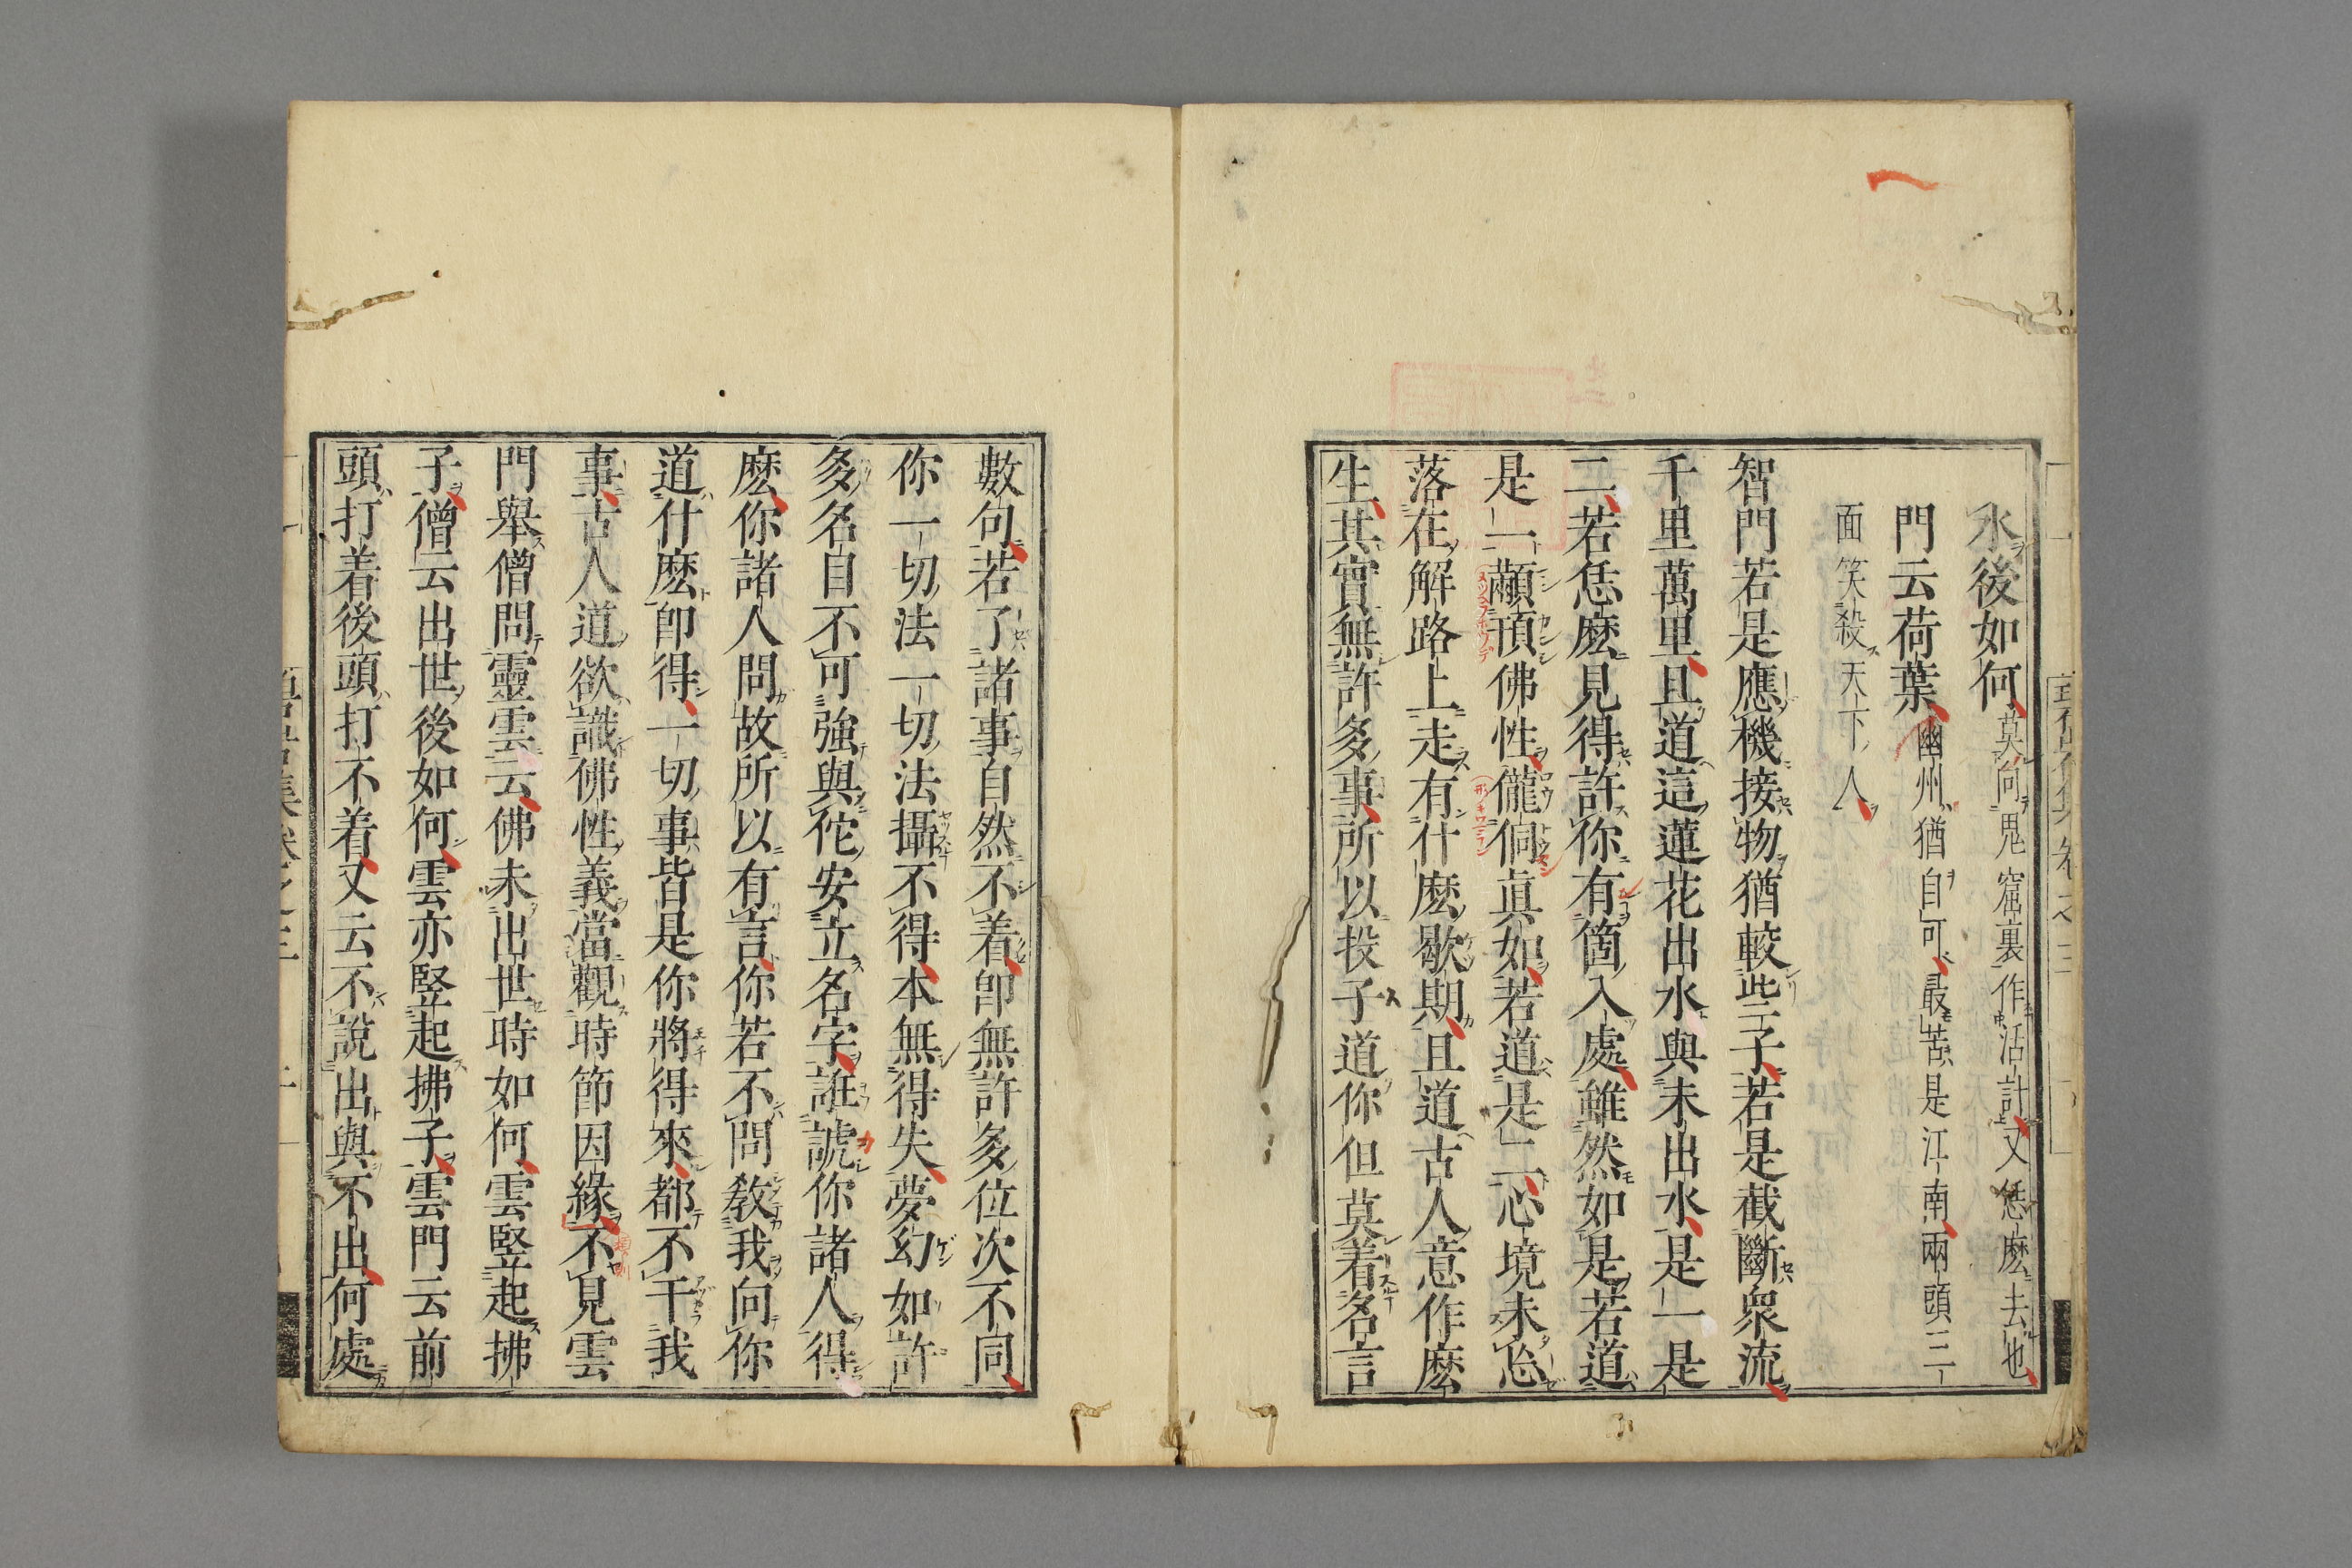 水後如何莫向鬼窟裏作活計又恁麼去也
門云荷葉幽州猶自可最苦是江南兩頭三
面笑殺天下人
智門若是應機接物猶較些子若是截斷衆流
千里萬里且道這蓮花出水與未出水是一是
二若恁麼見得許你有箇入處雖然如是若道
是一顢頇佛性儱侗眞如若道是二心境未忘
落在解路上走有什麼歇期且道古人意作麼
生其實無許多事所以投子道你但莫着名言
數句若了諸事自然不着卽無許多位次不同
你一切法一切法攝不得本無得失夢幻如許
多名自不可強與佗安立名字誑謼你諸人得
麼你諸人問故所以有言你若不問敎我向你
道什麼卽得一切事皆是你將得來都不干我
事古人道欲識佛性義當觀時節因緣不見雲
門舉僧問靈雲云佛未出世時如何雲竪起拂
子僧云出世後如何雲亦竪起拂子雲門云前
頭打着後頭打不着又云不說出與不出何處